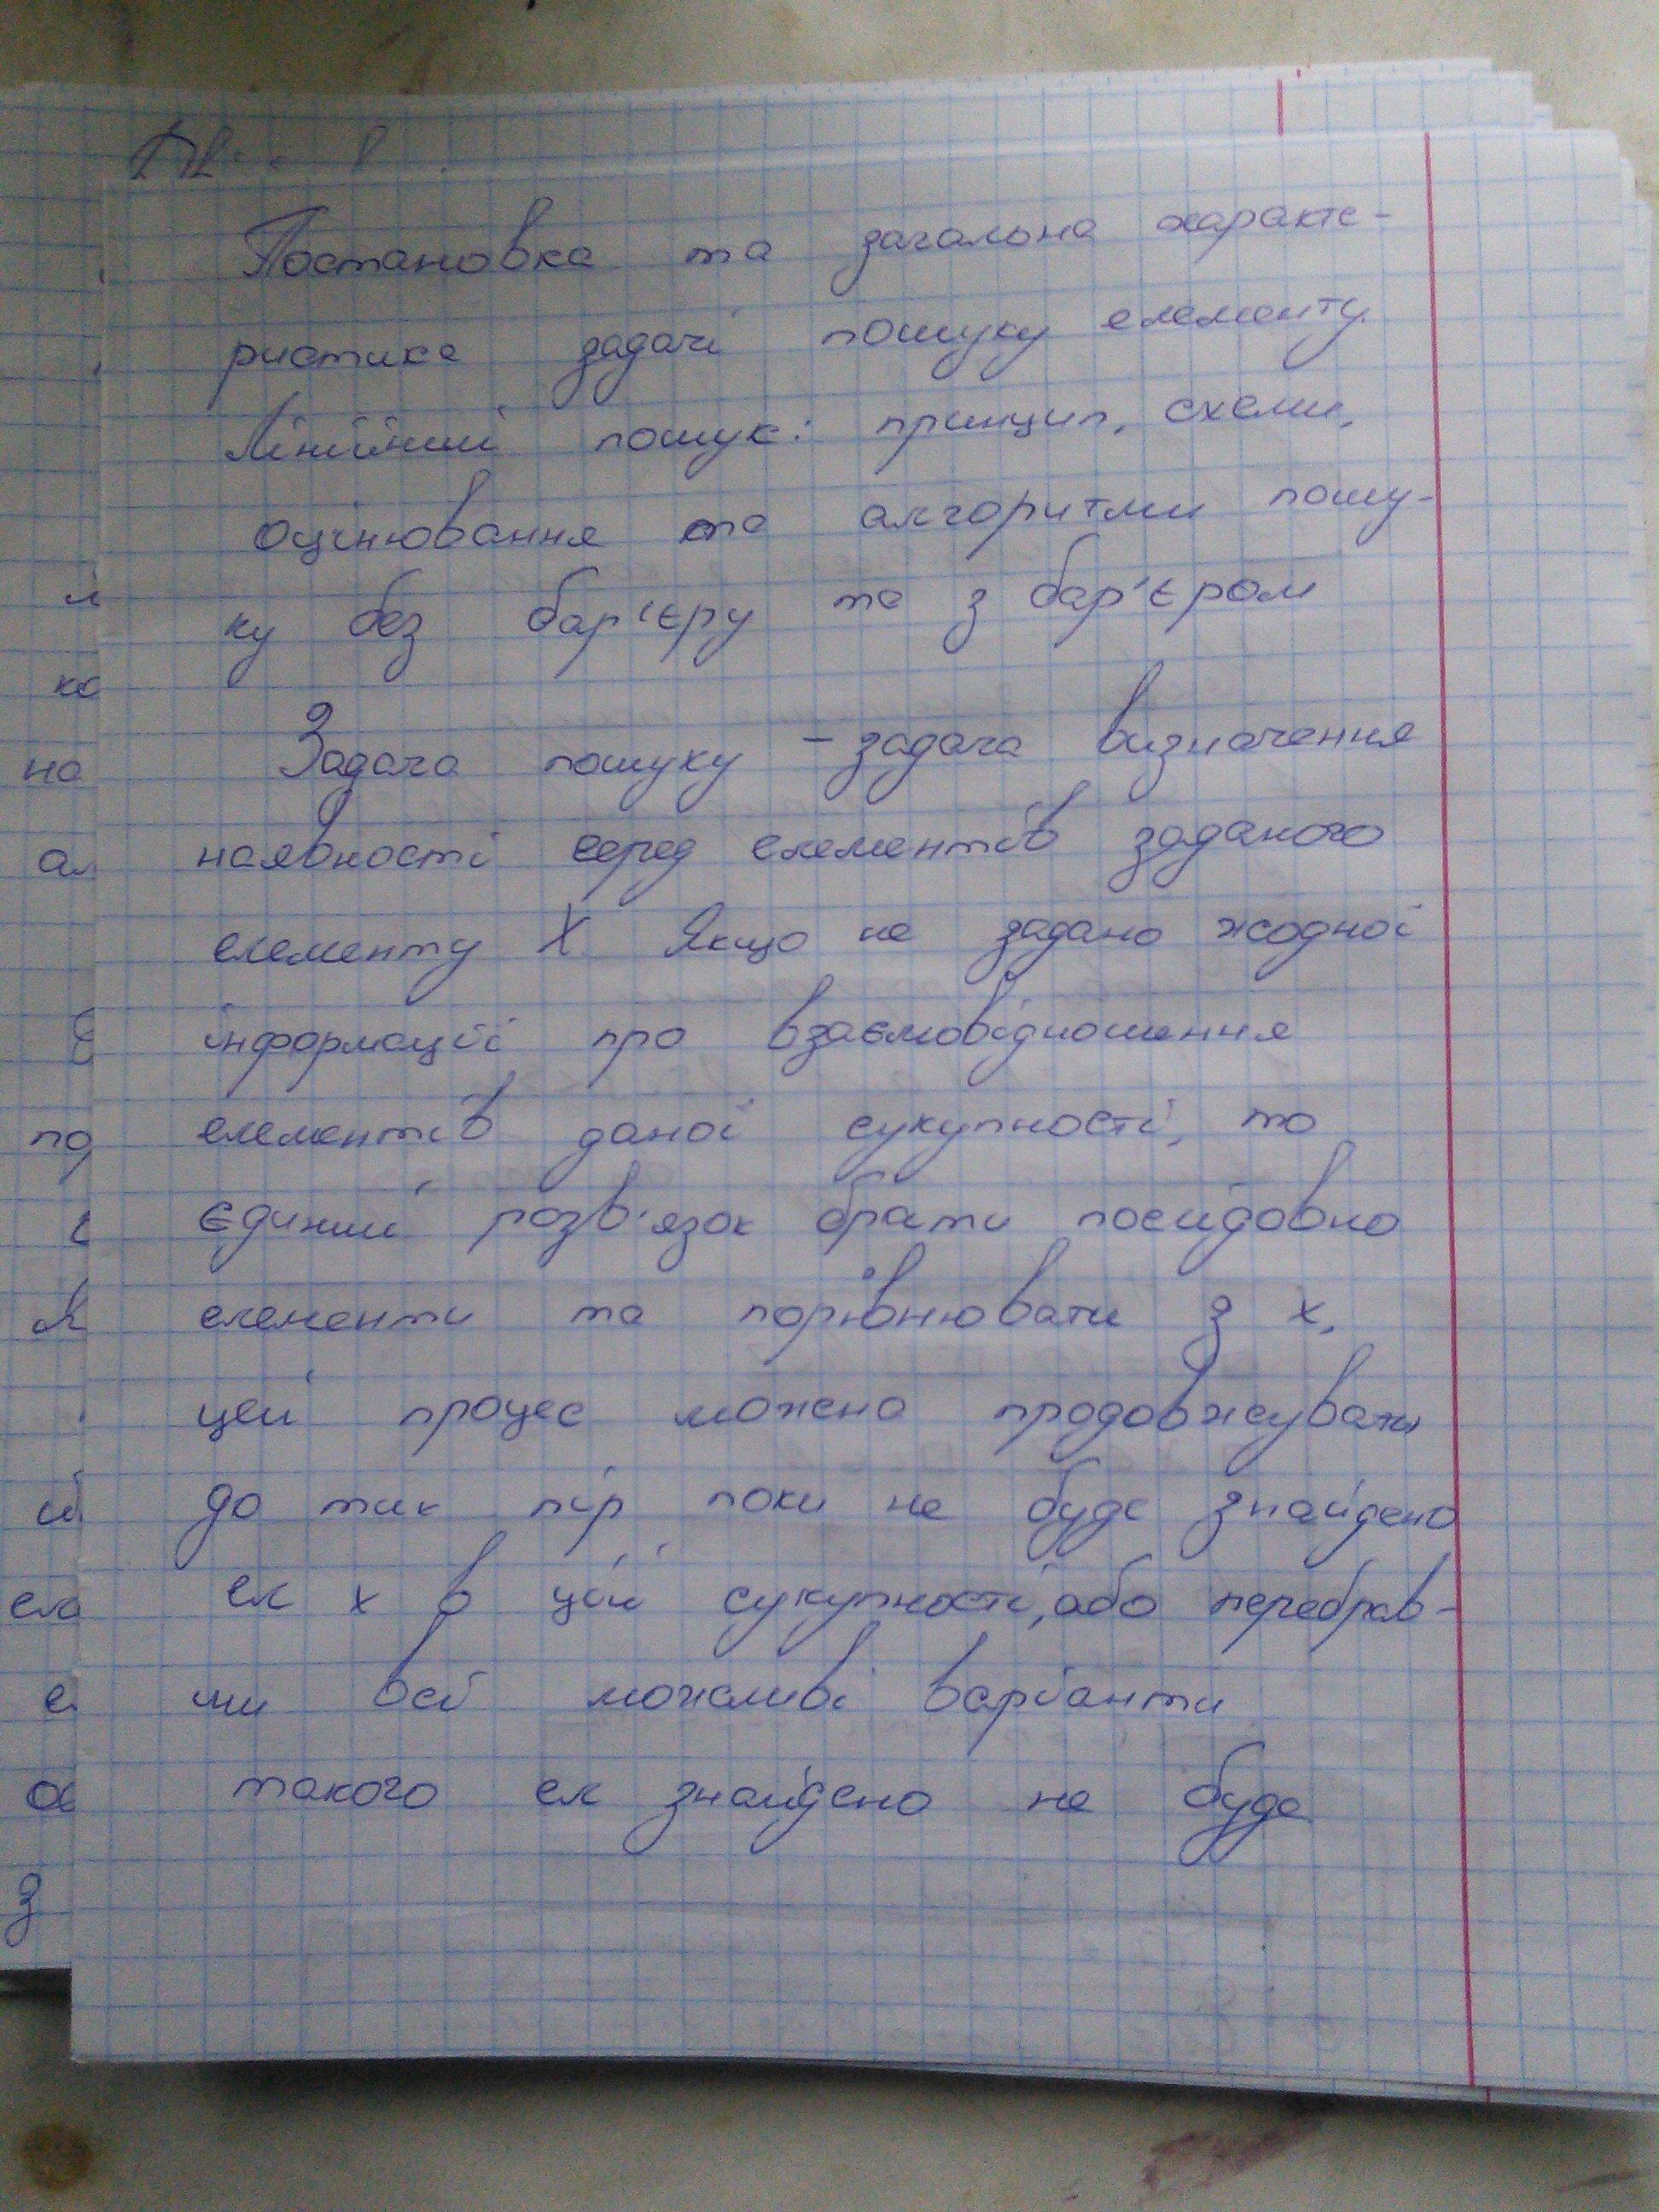 Постановка та загальна характе-
ристика задачі пошуку елементу.
Лінійний пошук: принцип, схеми,
оцінювання та алгоритми пошу-
ку без бар'єру та з бар'єром
Задача пошуку - задача визначення
наявності серед елементів заданого
елементу X Якщо не задано жодної
інформації про взаємовідношення
елементів даної сукупності, то
єдиний розв'язок брати послідовно
елементи та порівнювати з x,
цей процес можена продовжувати
до тих пір поки не буде знайдено
ел x в цій сукупності, або перебрав-
ши всі можливі варіанти
такого ел знайдено не буде